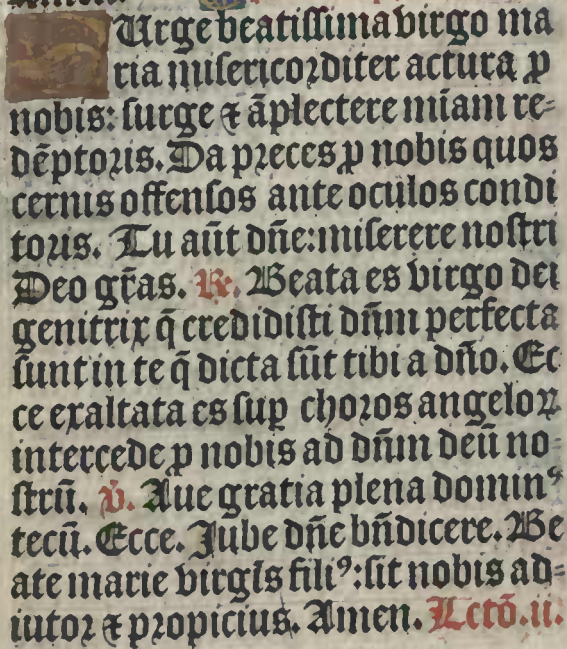 SUrge beatiſſima virgo ma
ria miſericoꝛditer actura ꝑ
nobis: ſurge ⁊ āplectere miam re⸗
dēptoꝛis. Da pꝛeces ꝓ nobis quos
cernis offenſos ante oculos condi
toꝛis. Tu aūt dn̄e: miſerere noſtri
Deo gr̄as. ℟. Beata es virgo dei
genitrix q̄ credidiſti dn̄m perfecta
ſunt in te q̄ dicta ſūt tibi a dn̄o. Ec
ce exaltata es ſuꝑ choꝛos angeloꝝ
intercede ꝓ nobis ad dn̄m deū no⸗
ſtrū. ℣. Aue gratia plena dominꝰ
tecū. Ecce. Jube dn̄e bn̄dicere. Be
ate marie virgīs filiꝰ: ſit nobis ad⸗
iutoꝛ ⁊ pꝛopicius. Amen. Lctō. ii.